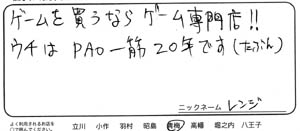 ゲームを買うならゲーム専門店!!
ウチはPAO一筋20年です(たぶん)
ニックネーム レンジ
よく利用されるお店を
○で囲んでください。
立川 小作 羽村 昭島 青梅 高幡 堀之内 八王子